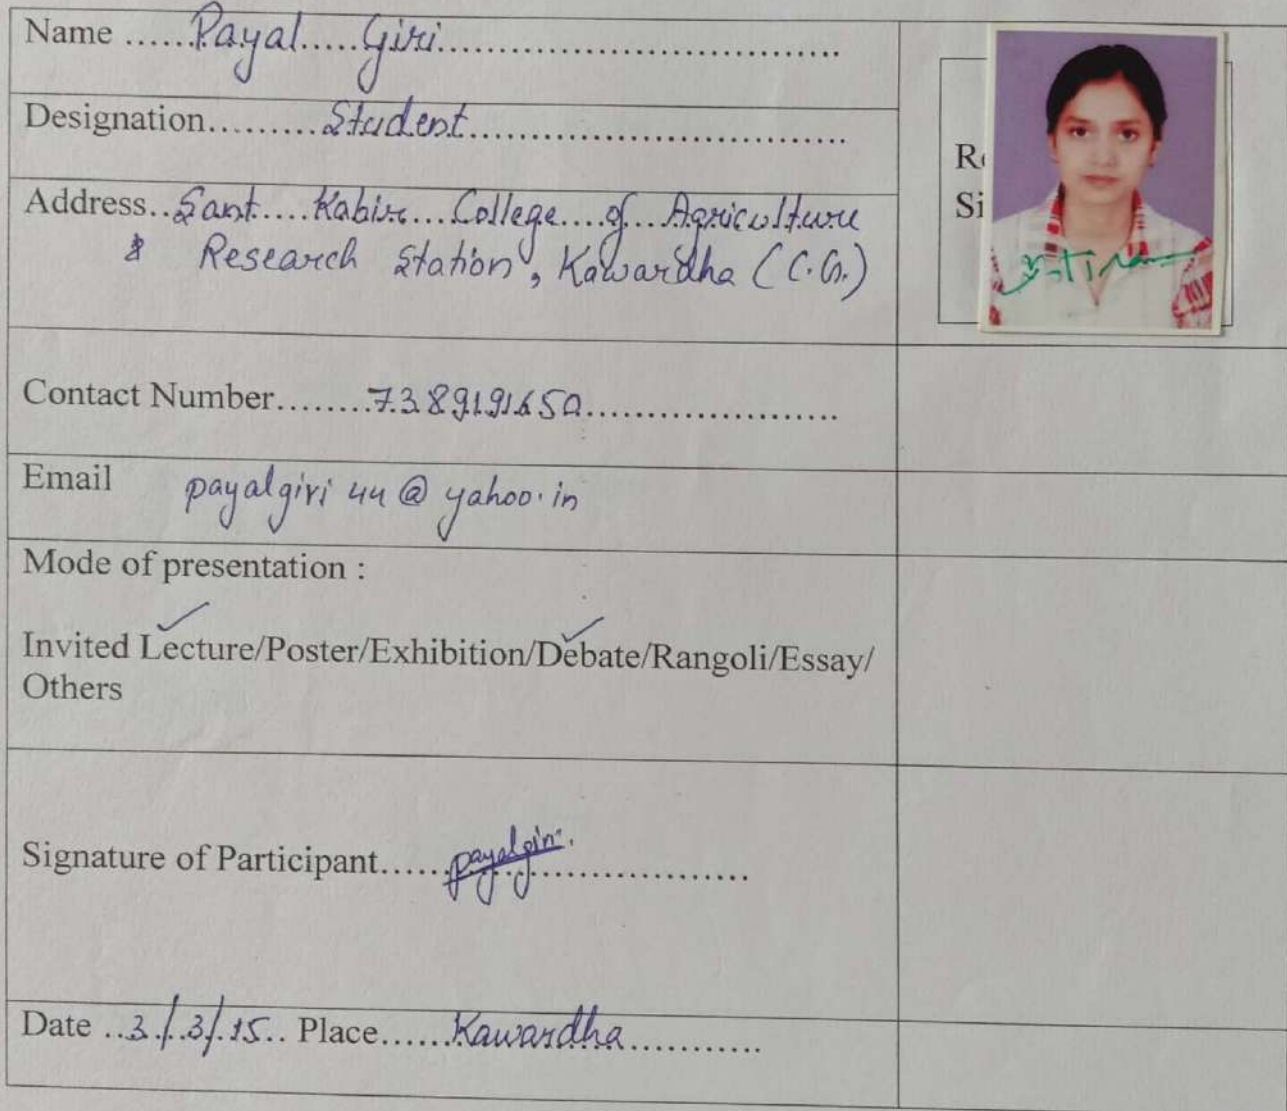 Name ......Payal.....Giri.......................................
Designation.........Student.......................................
R
Si
Address..Sant....Kabir...College....of...Agriculture
& Research Station, Kawardha (C.G.)
Contact Number........7389191650......................
Email payalgiri 44 @ yahoo.in
Mode of presentation :
Invited Lecture/Poster/Exhibition/Debate/Rangoli/Essay/
Others
Signature of Participant......payalgiri...................
Date ..3./.3/.15.. Place......Kawardha............